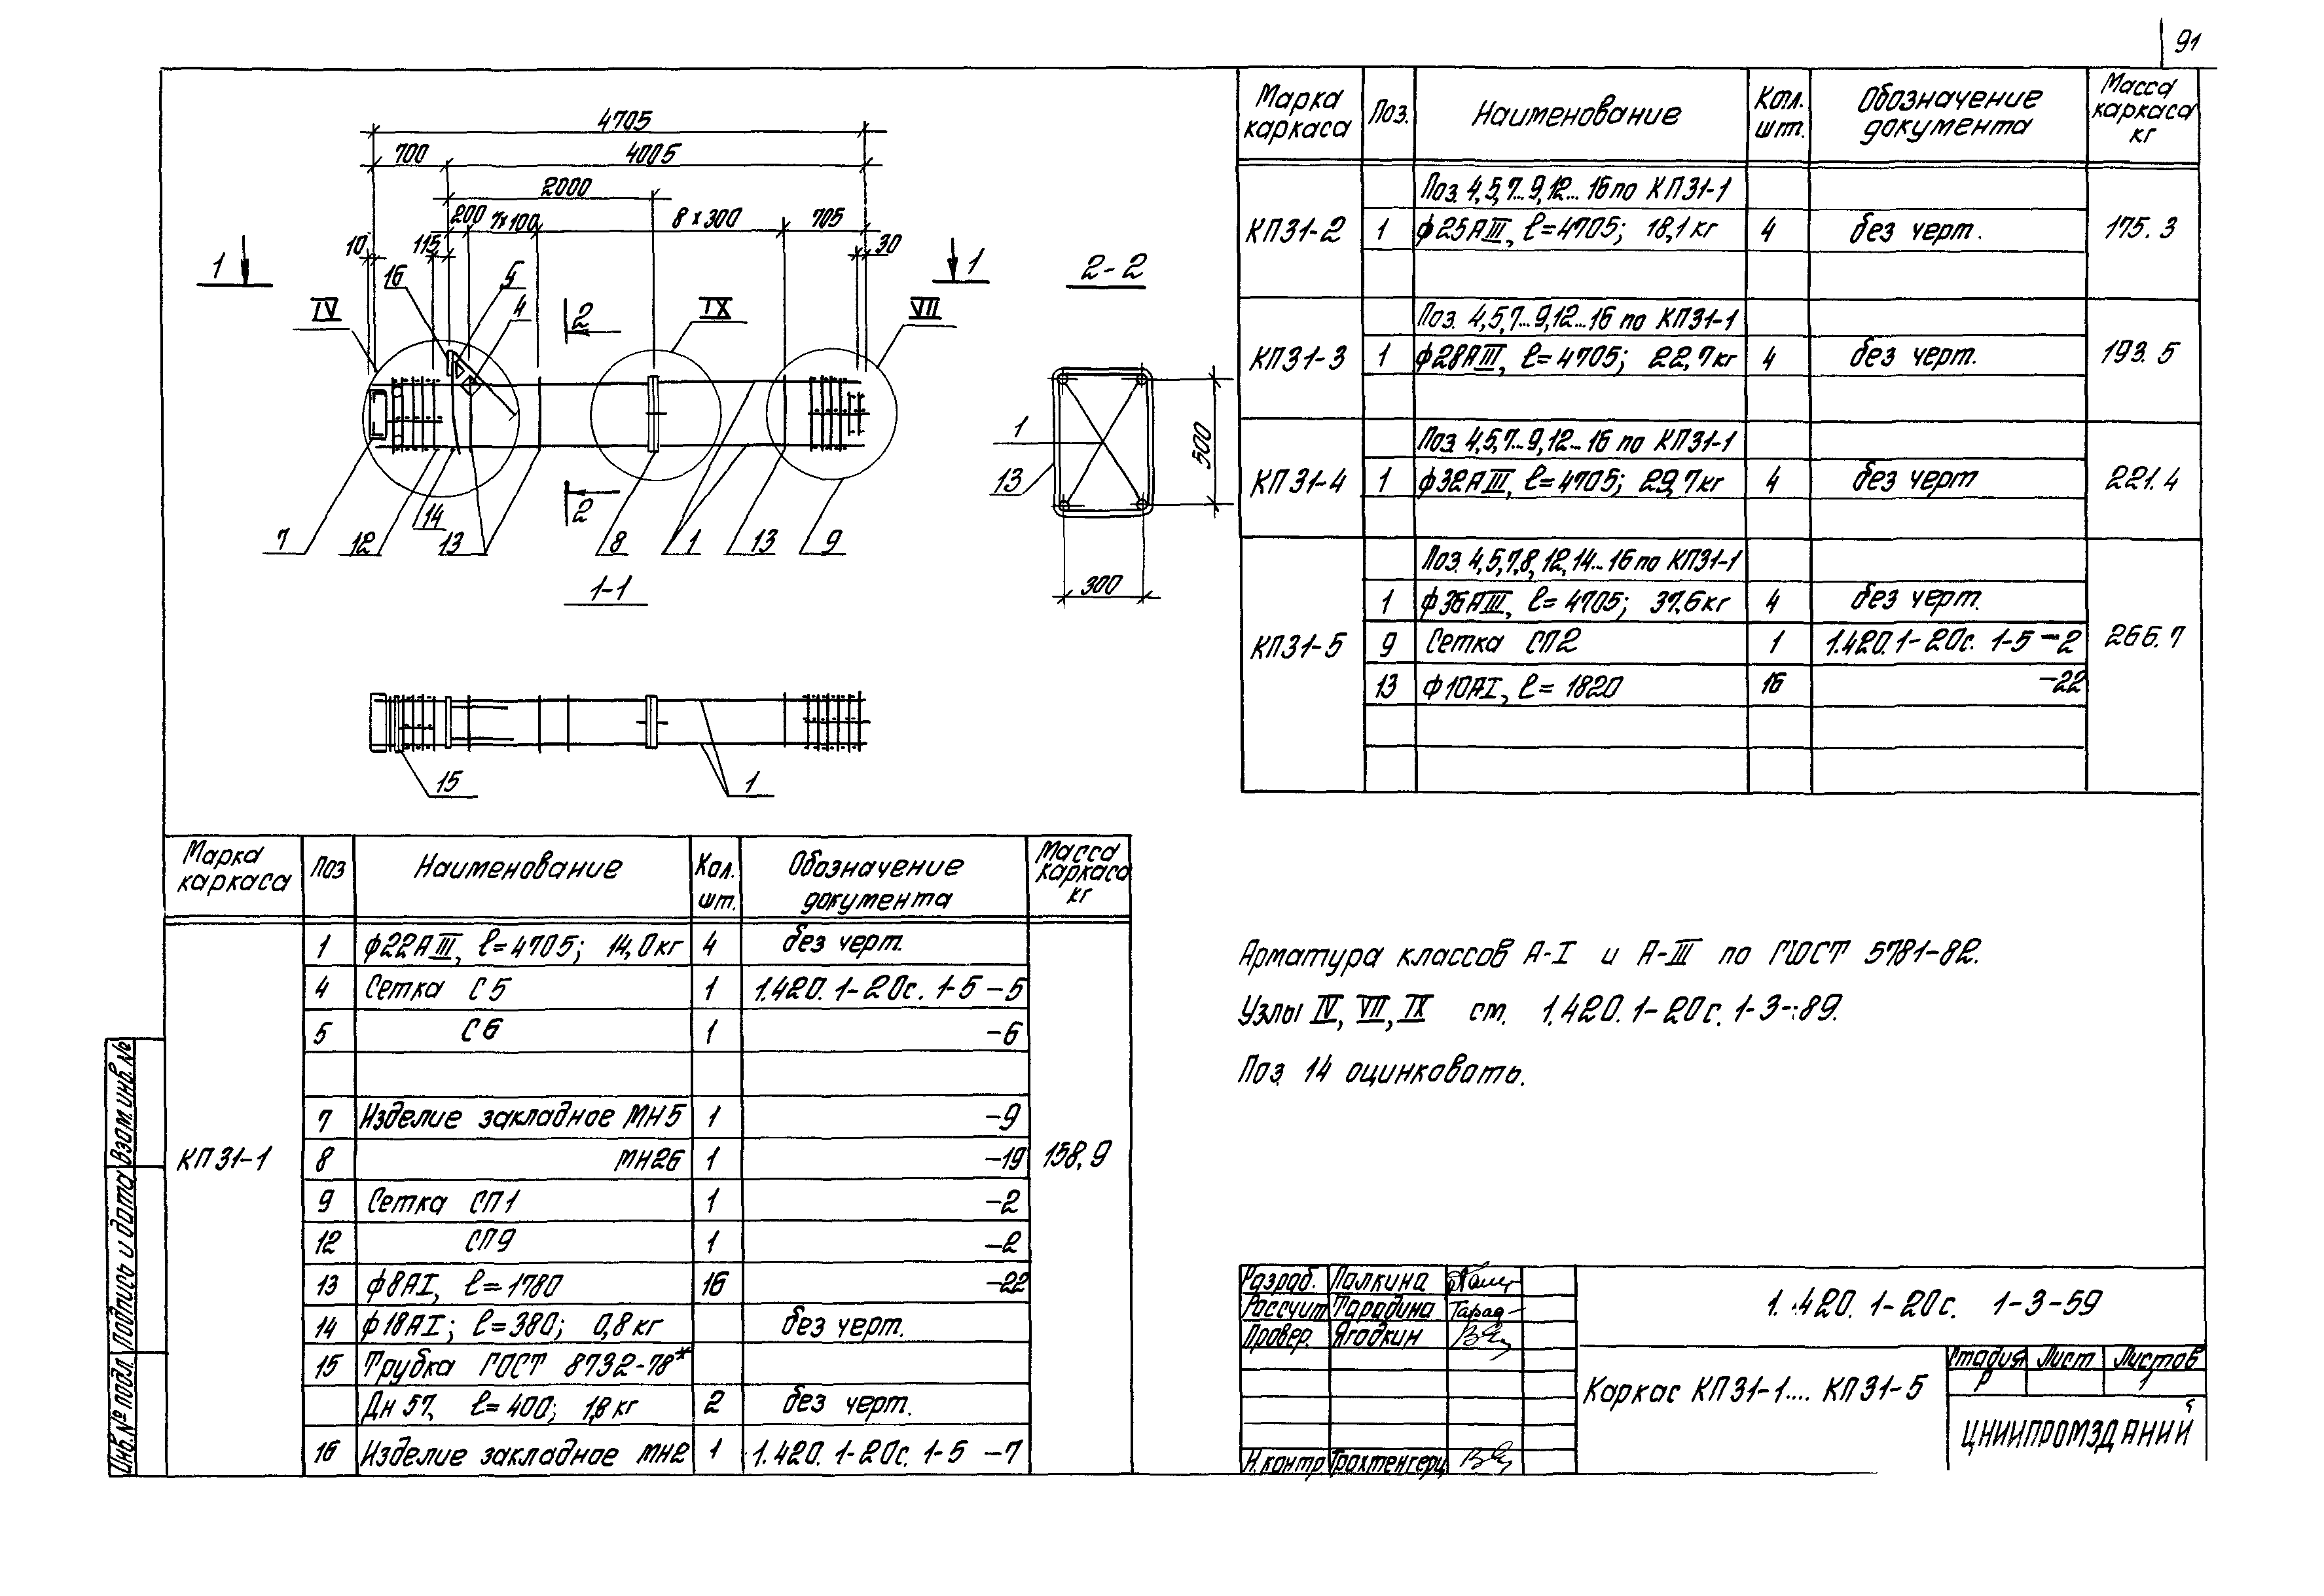 91
4705
700
4005
2000
200
7x100
8 x 300
705
10
115
30
1
1
16
5
4
IV
2
IX
VII
2
7
12
14
13
8
1
13
9
2-2
1
13
500
300
1-1
15
1
Марка каркаса
Поз.
Наименование
Кол. шт.
Обозначение документа
Масса каркаса кг
КП31-2
Поз. 4,5,7...9,12... 16 по КП31-1
1 ф25АIII, ℓ=4705; 18,1 кг 4 без черт. 175.3
КП31-3
Поз. 4,5,7...9,12...16 по КП31-1
1 ф28АIII, ℓ=4705; 22,7кг 4 без черт. 193.5
КП31-4
Поз. 4,5,7...9,12...16 по КП31-1
1 ф32АIII, ℓ=4705; 29,7кг 4 без черт 221.4
КП31-5
Поз. 4,5,7,8,12,14...16 по КП31-1
1 ф36АIII, ℓ= 4705; 37.6кг 4 без черт.
9 Сетка СП2 1 1.420.1-20с. 1-5 -2 266.7
13 ф10АI, ℓ= 1820 16 -22
Марка каркаса
Поз
Наименование
Кол. шт.
Обозначение документа
Масса каркаса кг
1 ф22АIII, ℓ=4705; 14,0кг 4 без черт.
4 Сетка С5 1 1.420.1-20с. 1-5 -5
5 С6 1 -6
7 Изделие закладное МН5 1 -9
КП31-1 8 МН26 1 -19 158,9
9 Сетка СП1 1 -2
12 СП9 1 -2
13 ф8АI, ℓ=1780 16 -22
14 ф18АI; ℓ=380; 0,8 кг без черт.
15 Трубка ГОСТ 8732-78*
Дн 57, ℓ=400; 1,8 кг 2 без черт.
16 Изделие закладное мн2 1 1.420.1-20с. 1-5 -7
Арматура классов А-I и А-III по ГОСТ 5781-82.
Узлы IV, VII, IX см. 1.420.1-20с. 1-3-89.
Поз. 14 оцинковать.
Взам. инв. №
Подпись и дата
Инв. № подл.
Разраб. Палкина
Рассчит Тарадина Тарад
Провер. Ягодкин
Н.контр. Трахтенгерц
1.420.1-20с. 1-3-59
Каркас КП31-1.... КП31-5
Стадия Лист Листов
Р 1
ЦНИИПРОМЗДАНИЙ